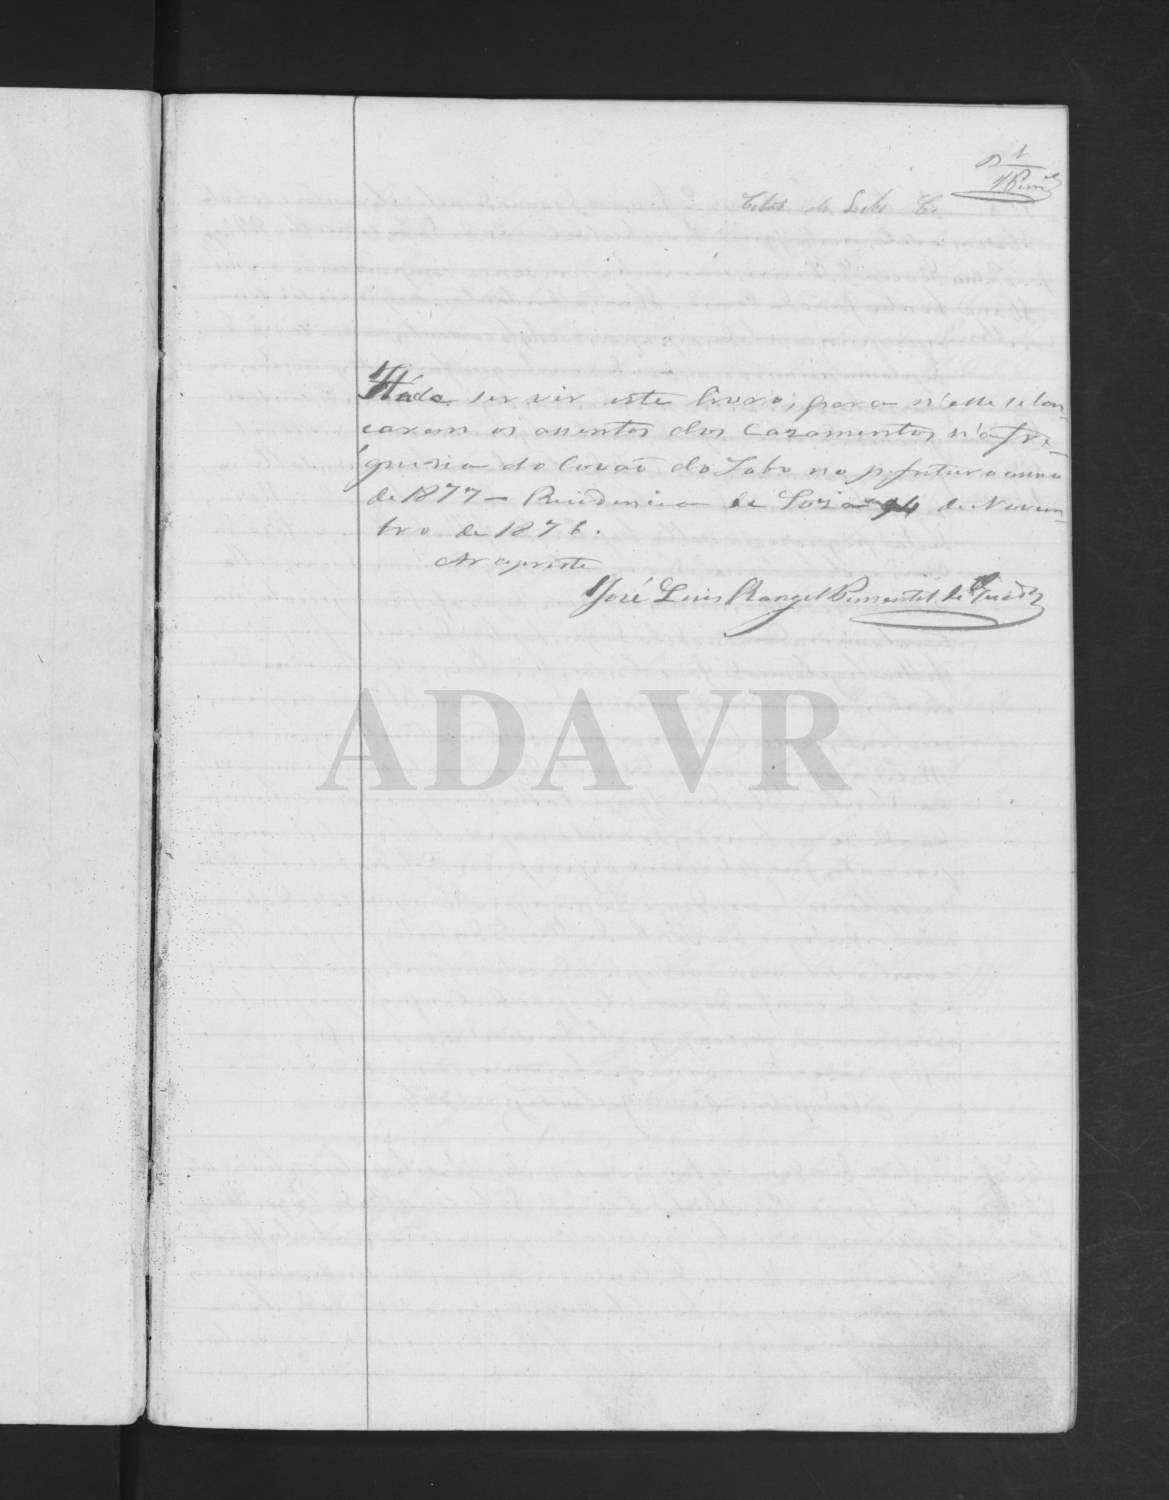 1
Pim.el
Ha de servir este livro, para n'elle se lan-
çaram os assentos dos Cazamentos n'a fre-
guesia do Covão do Lobo no p. futuro anno
de 1877 — Residencia de Soza 24 de Novem-
bro de 1876.
O Arcipreste
José Luis Rangel Pimentel de
ADAVR